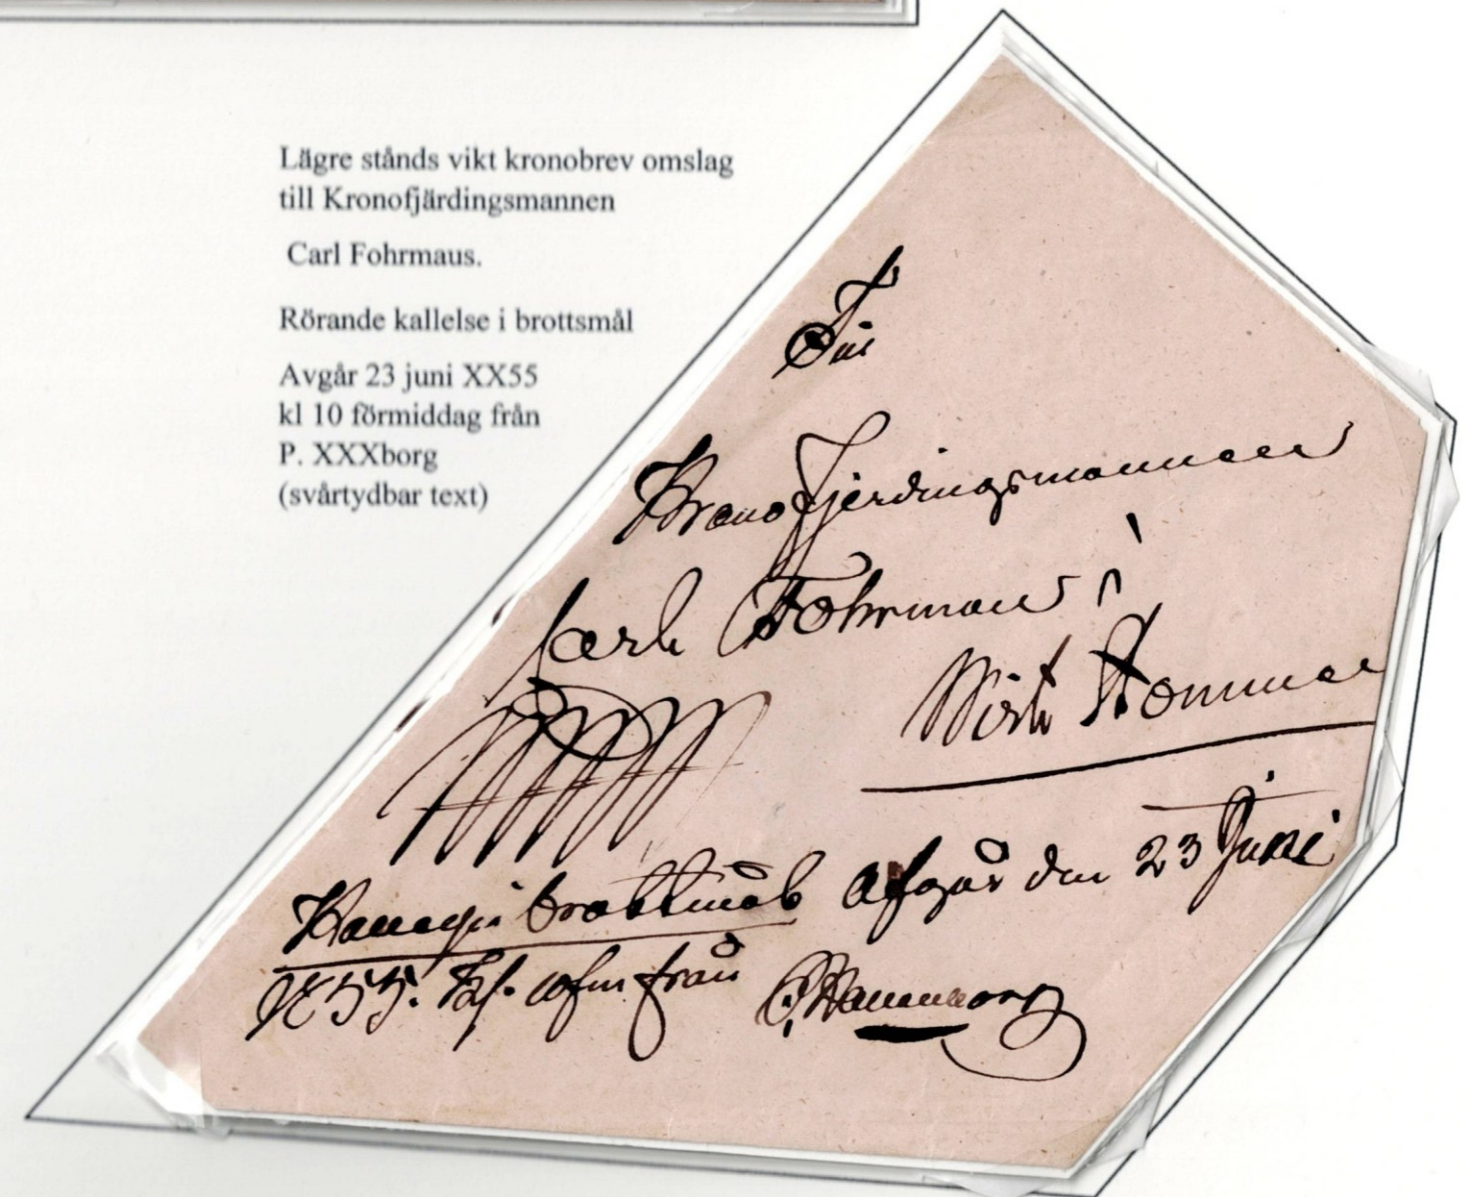 Lägre stånds vikt kronobrev omslag
till Kronofjärdingsmannen
Carl Fohrmaus.
Rörande kallelse i brottsmål
Avgår 23 juni XX55
kl 10 förmiddag från
P. XXXborg
(svårtydbar text)
Krono fjerdingsmannen
Carl Fohrman i
brottmål Afgår den 23 Juni
1855. Kl. 10 fm från